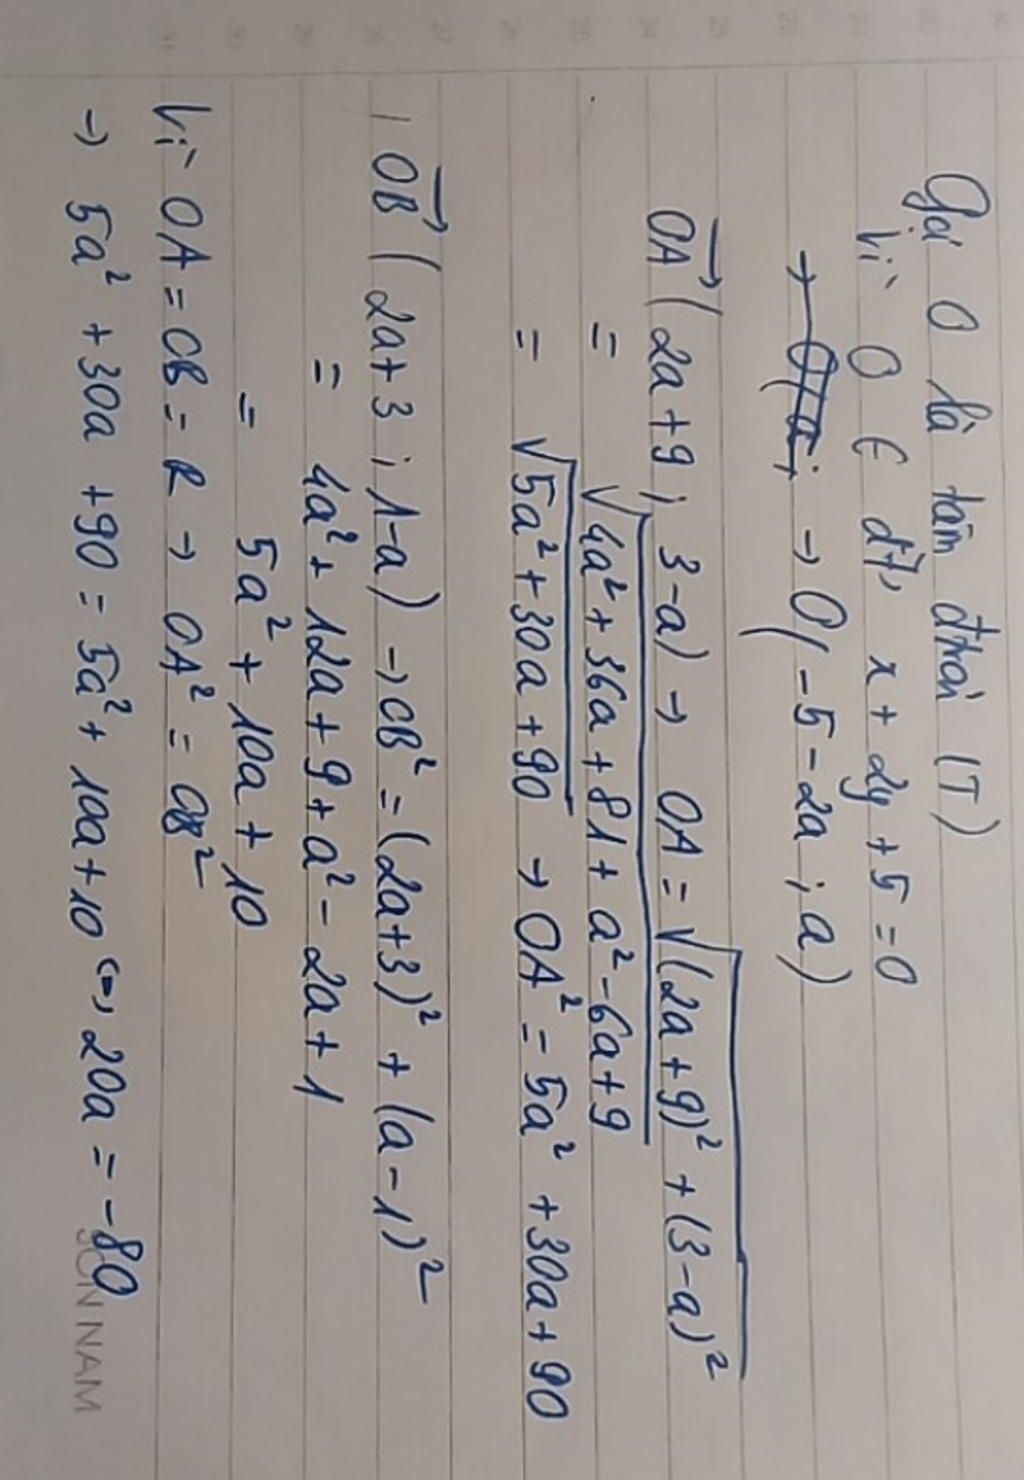 Gọi O là tâm đtròn (T)
Vì O ∈ đt, x + 2y + 5 = 0
→ O(a; → O(-5-2a ; a)
OA→ (2a+9 ; 3-a) → OA = √(2a+9)² + (3-a)²
= √4a² + 36a + 81 + a² - 6a + 9
= √5a² + 30a + 90 → OA² = 5a² + 30a + 90
| OB→ (2a+3 ; 1-a) → OB² = (2a+3)² + (a-1)²
= 4a² + 12a + 9 + a² - 2a + 1
= 5a² + 10a + 10
Vì OA = OB = R → OA² = OB²
→ 5a² + 30a + 90 = 5a² + 10a + 10 ⇔ 20a = -80
19 20 21 22 23 24 25 26 27 28 29 30 31
SON NAM